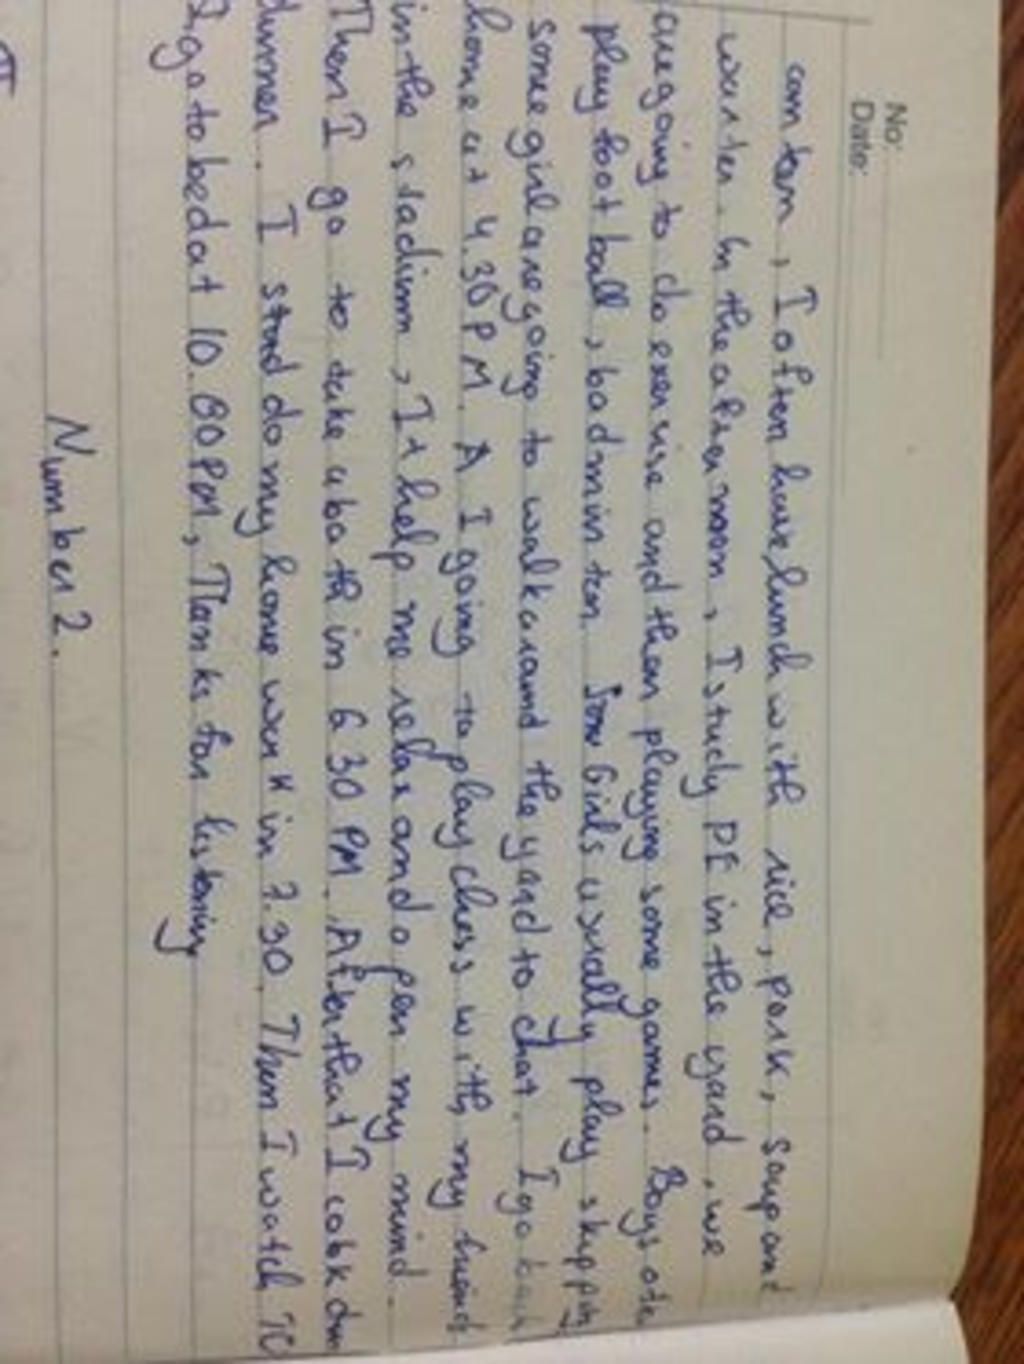 No:
Date:
can ten, I often have lunch with rice, pork, soup and
warter. In the after noon, I study PE in the yard, we
are going to do exersise and then playing some games. Boys ote
play foot ball, bad min ten. Som Girls usually play skipping,
some girl are going to walk around the yard to chat. I go back
home at 4.30 PM. A I going to play chess with my friend
in the stadium, It help me relax and open my mind.
Then I go to take a bath in 6.30 PM. After that I cook
dunner. I stard do my home work in 7.30. Then I watch
I go to bed at 10.00 PM, Thanks for listening
Number 2.
I